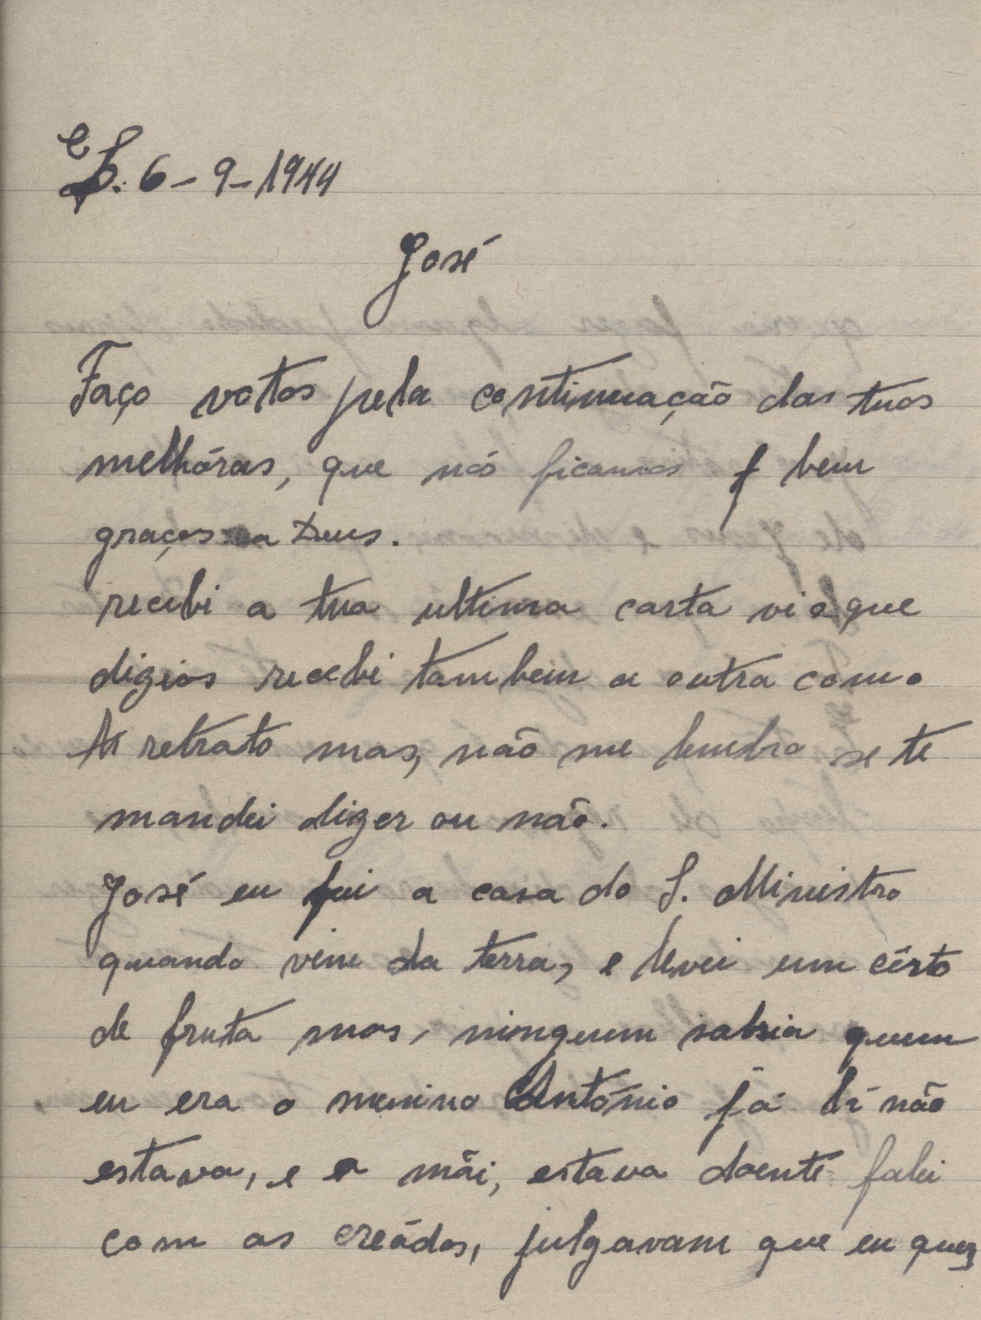 6-9-1944
José
Faço votos pela continuação das tuas
melhóras, que nós ficamos bem
graças a Deus.
recebi a tua ultima carta vi o que
digias recebi tambem a outra com o
retrato mas, não me lembro se te
mandei dizer ou não.
José eu fui a casa do S. Ministro
quando vim da terra, e levei um cêrto
de fruta mas, ninguem sabia quem
eu era o menino António já lá não
estava, e a mãi, estava doente falei
com as creádas, julgavam que eu quez